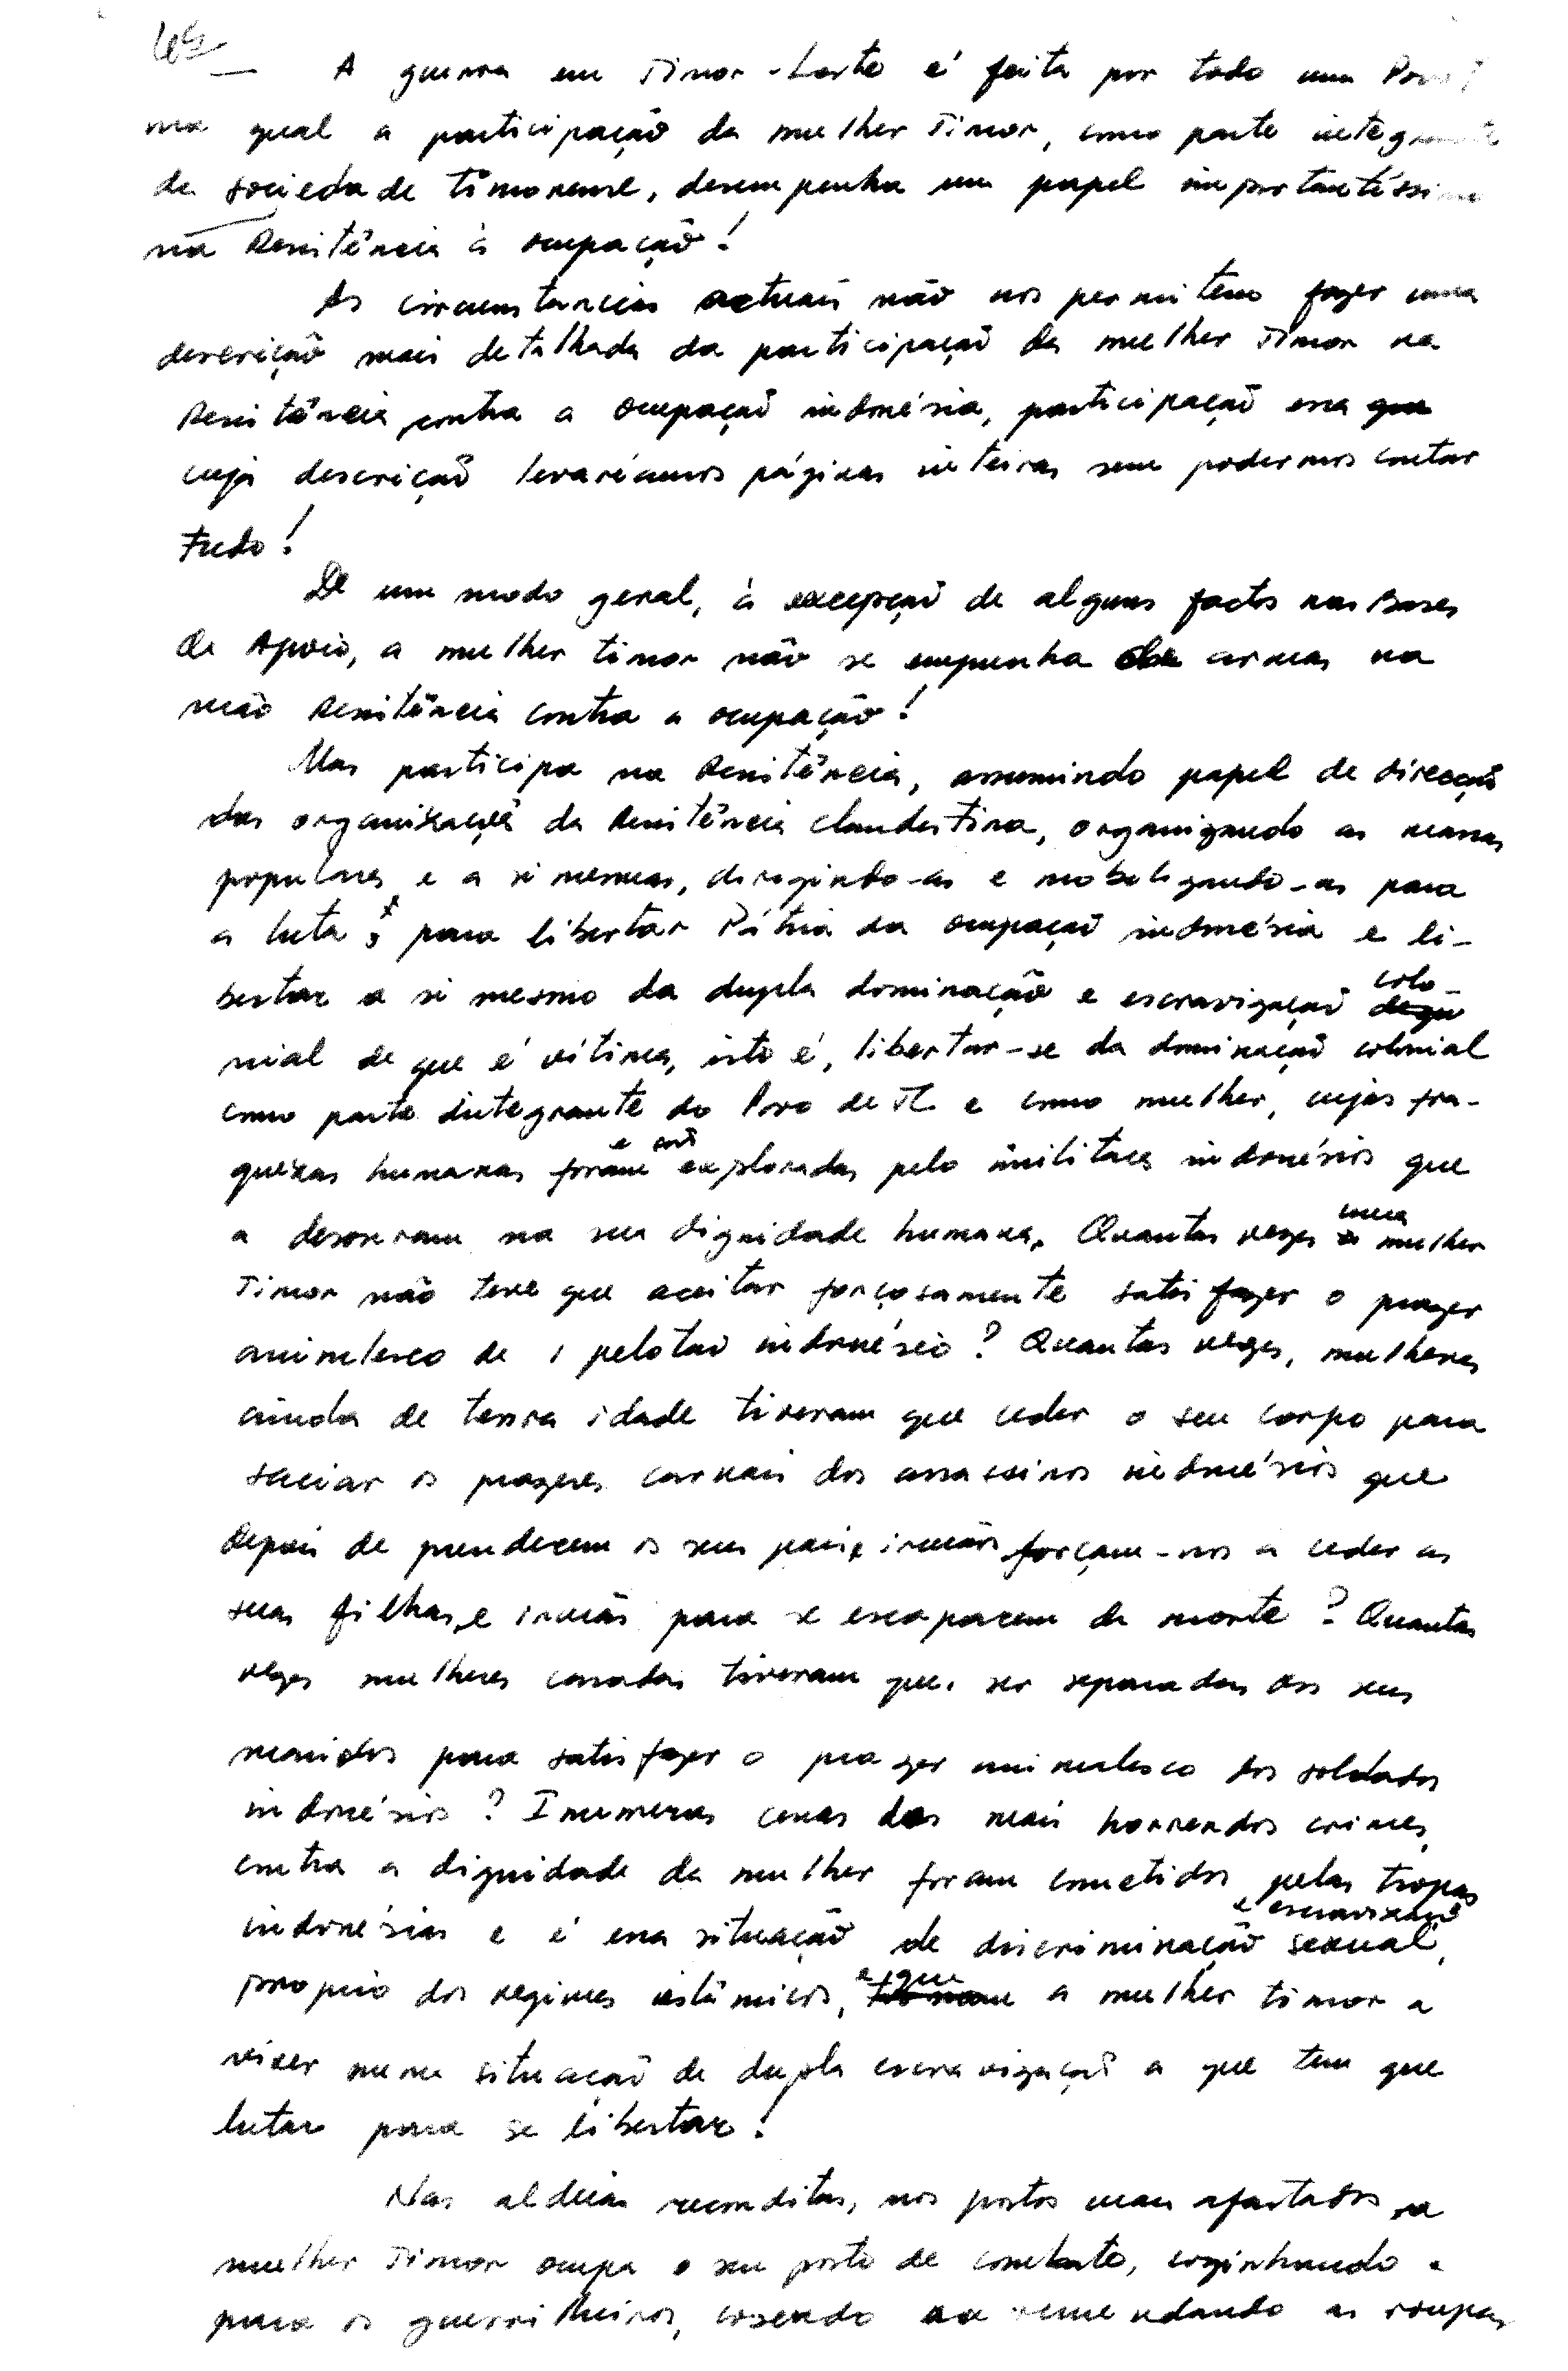 A guerra em Timor-Leste é feita por todo um Povo!
na qual a participação da mulher Timor, como parte integrante
da sociedade timorense, desempenha um papel importantíssimo
na Resistência à ocupação!
As circunstancias actuais não nos permitem fazer uma
descrição mais detalhada da participação da mulher Timor na
Resistência contra a ocupação indonésia, participação essa
cuja descrição levaríamos páginas inteiras sem podermos contar
tudo!
De um modo geral, à excepção de alguns factos nas Bases
de Apoio, a mulher timor não se empunha armas na
Resistência contra a ocupação!
Mas participa na Resistência, assumindo papel de direcção
das organizações da Resistência clandestina, organizando as massas
populares e a si mesmas, dirigindo-as e mobilizando-as para
a luta para libertar Pátria da ocupação indonésia e li-
bertar a si mesmo da dupla dominação e escravização colo-
nial de que é vítima, isto é, libertar-se da dominação colonial
como parte integrante do Povo de TL e como mulher, cujas fra-
quezas humanas foram e são exploradas pelo militares indonésios que
a desonram na sua dignidade humana. Quantas vezes uma mulher
Timor não teve que aceitar forçosamente satisfazer o prazer
animalesco de 1 pelotão indonésio? Quantas vezes, mulheres
ainda de tenra idade tiveram que ceder o seu corpo para
saciar os prazeres carnais dos assassinos indonésios que
depois de prenderem os seus pais e irmãos forçam-nos a ceder as
suas filhas e irmãs para se escaparem da morte? Quantas
vezes mulheres casadas tiveram que ser separadas dos seus
maridos para satisfazer o prazer animalesco dos soldados
indonésios? Inumeras cenas dos mais horrendos crimes
contra a dignidade da mulher foram cometidos pelas tropas
indonésias e é essa situação de discriminação e escravização sexual,
proprio dos regimes islâmicos, a mulher timor a
viver numa situação de dupla escravização a que tem que
lutar para se libertar!
Nas aldeias reconditas, nos postos mais afastados, a
mulher Timor ocupa o seu posto de combate, cozinhando
para os guerrilheiros, cosendo remendando as roupas